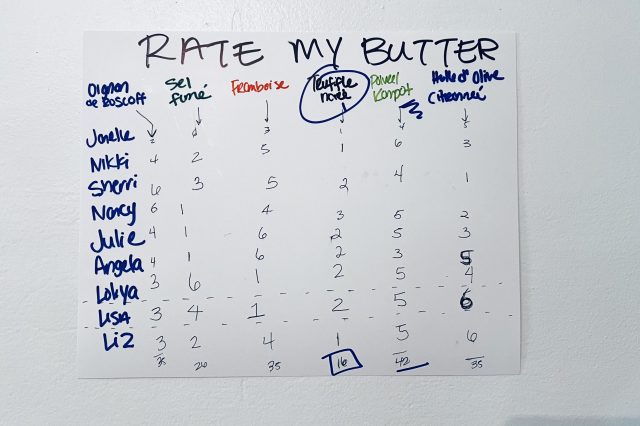 RATE MY BUTTER
Oignon de Roscoff Sel fumé Framboise Truffle noire Kampot Huile d'Olive Citronnée
Jorelle 3 1 5
Nikki 4 2 5 1 6 3
Sherri 6 3 5 2 4 1
Nancy 6 1 4 3 5 2
Julie 4 1 6 2 5 3
Angela 4 1 6 2 3 5
Lokya 3 6 1 2 5 4
LISA 3 4 1 2 5 6
LiZ 3 2 4 1 5 6
35 26 35 16 42 35